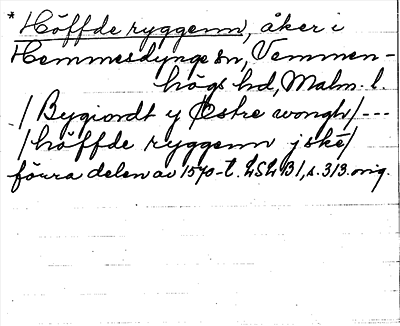 * Höffde ryggenn, åker i
Hemmesdynge sn, Vemmen-
högs hd, Malm. l.
/ Bygiordt y Østre wongh / ---
/ höffde ryggenn j ské/
förra delen av 1570-t. LSLB1, s. 313. orig.